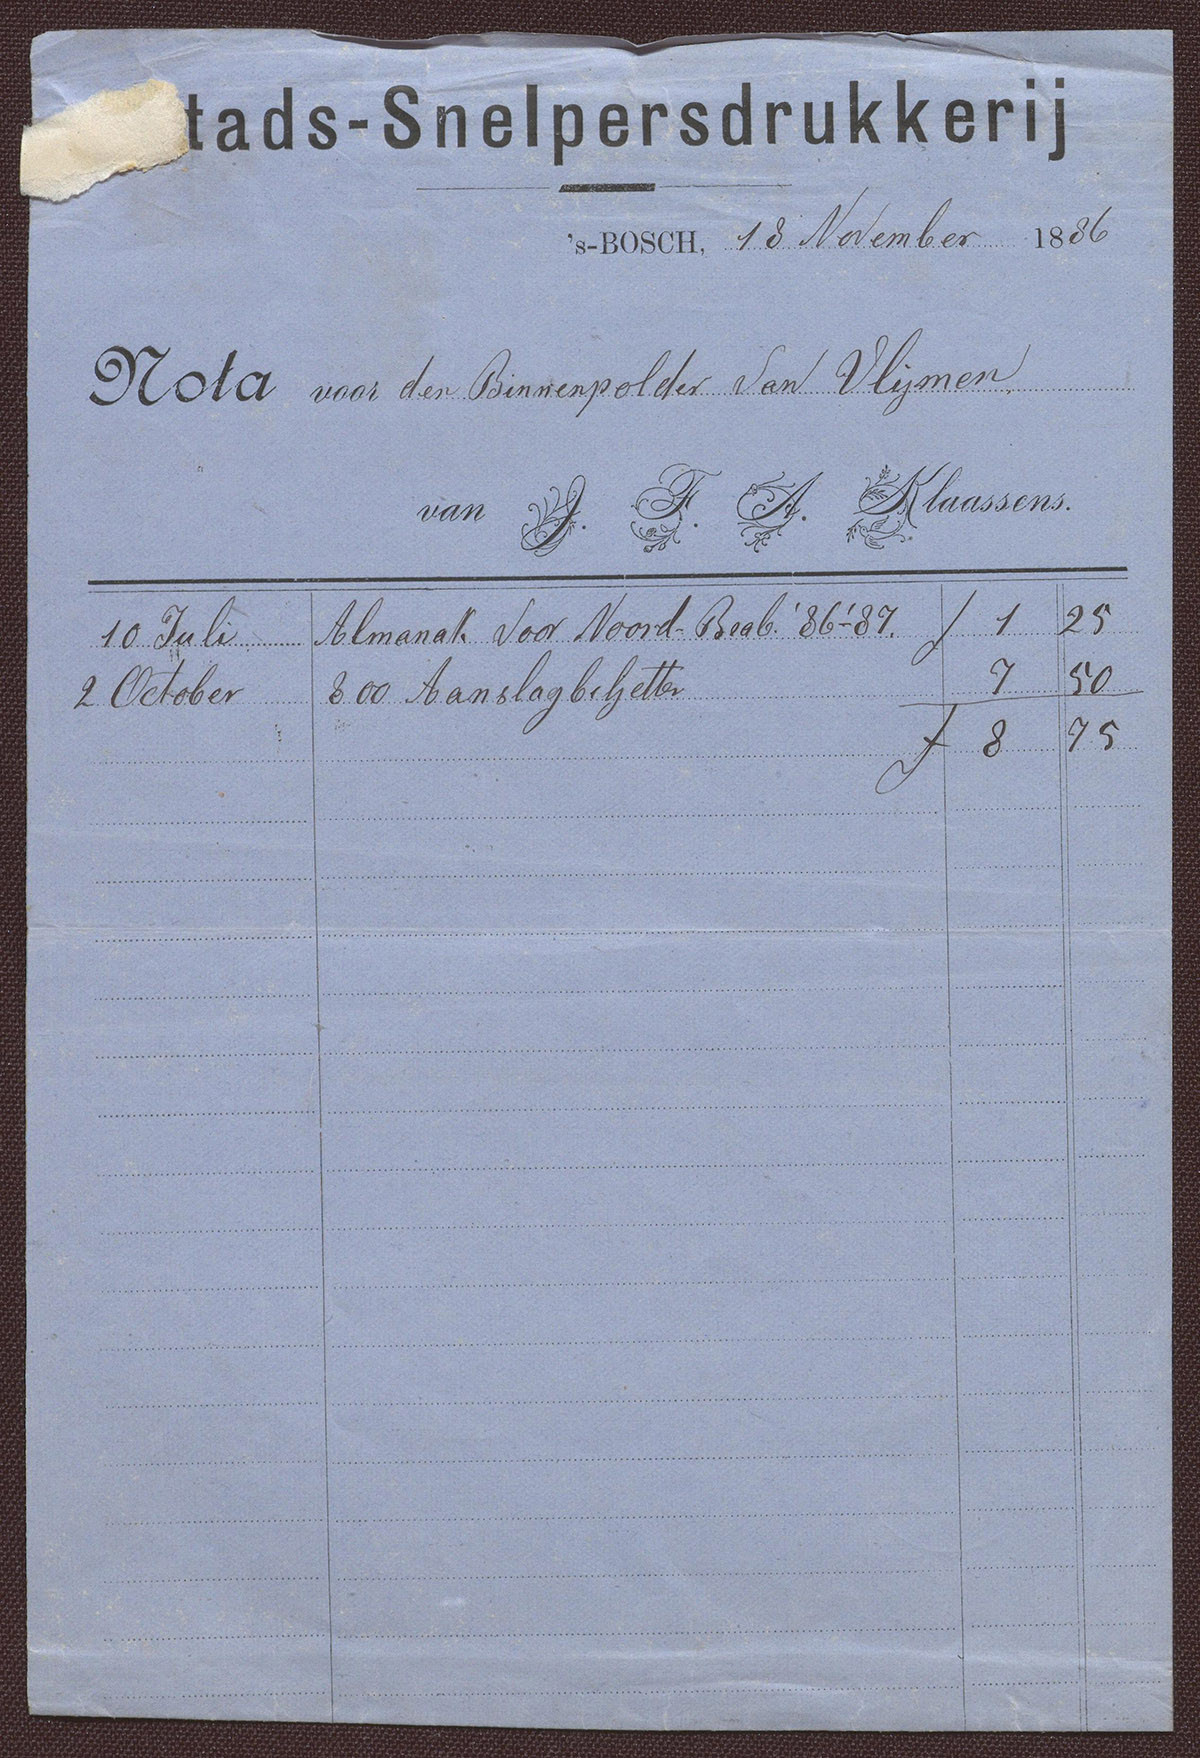 tads-Snelpersdrukkerij
's-BOSCH, 18 November 1886
Nota voor den Binnenpolder van Vlijmen
van J. F. A. Klaassens.
10 Juli Almanak voor Noord-Brab. '86-'87. f 1 25
2 October 800 Aanslagbiljetten 7 50
f 8 75